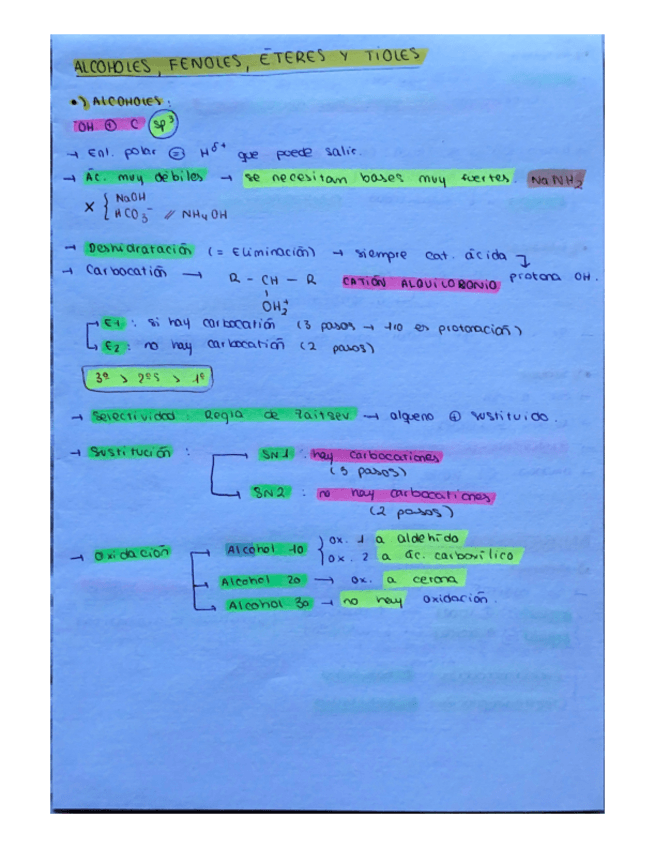 ALCOHOLES, FENOLES, ÉTERES Y TIOLES
•) ALCOHOLES:
OH ⊕ C sp³
→ Enl. polar ⊜ H^δ+ que puede salir.
→ Ác. muy débiles → se necesitan bases muy fuertes. NaNH₂
X { NaOH
HCO₃⁻ // NH₄OH
→ Deshidratación (= Eliminación) → siempre cat. ácida
protona OH.
→ Carbocatión → R - CH - R CATIÓN ALQUILORONIO
OH₂⁺
E1: si hay carbocatión (3 pasos → 1º es protonación)
E2: no hay carbocatión (2 pasos)
3º > 2ºs > 1º
→ Selectividad: Regla de Zaitsev → alqueno ⊕ sustituido.
→ Sustitución: SN1: hay carbocationes
(3 pasos)
SN2: no hay carbocationes
(2 pasos)
→ Oxidación Alcohol 1º { ox. 1 a aldehído
ox. 2 a ác. carboxílico
Alcohol 2º → ox. a cetona
Alcohol 3º → no hay oxidación.